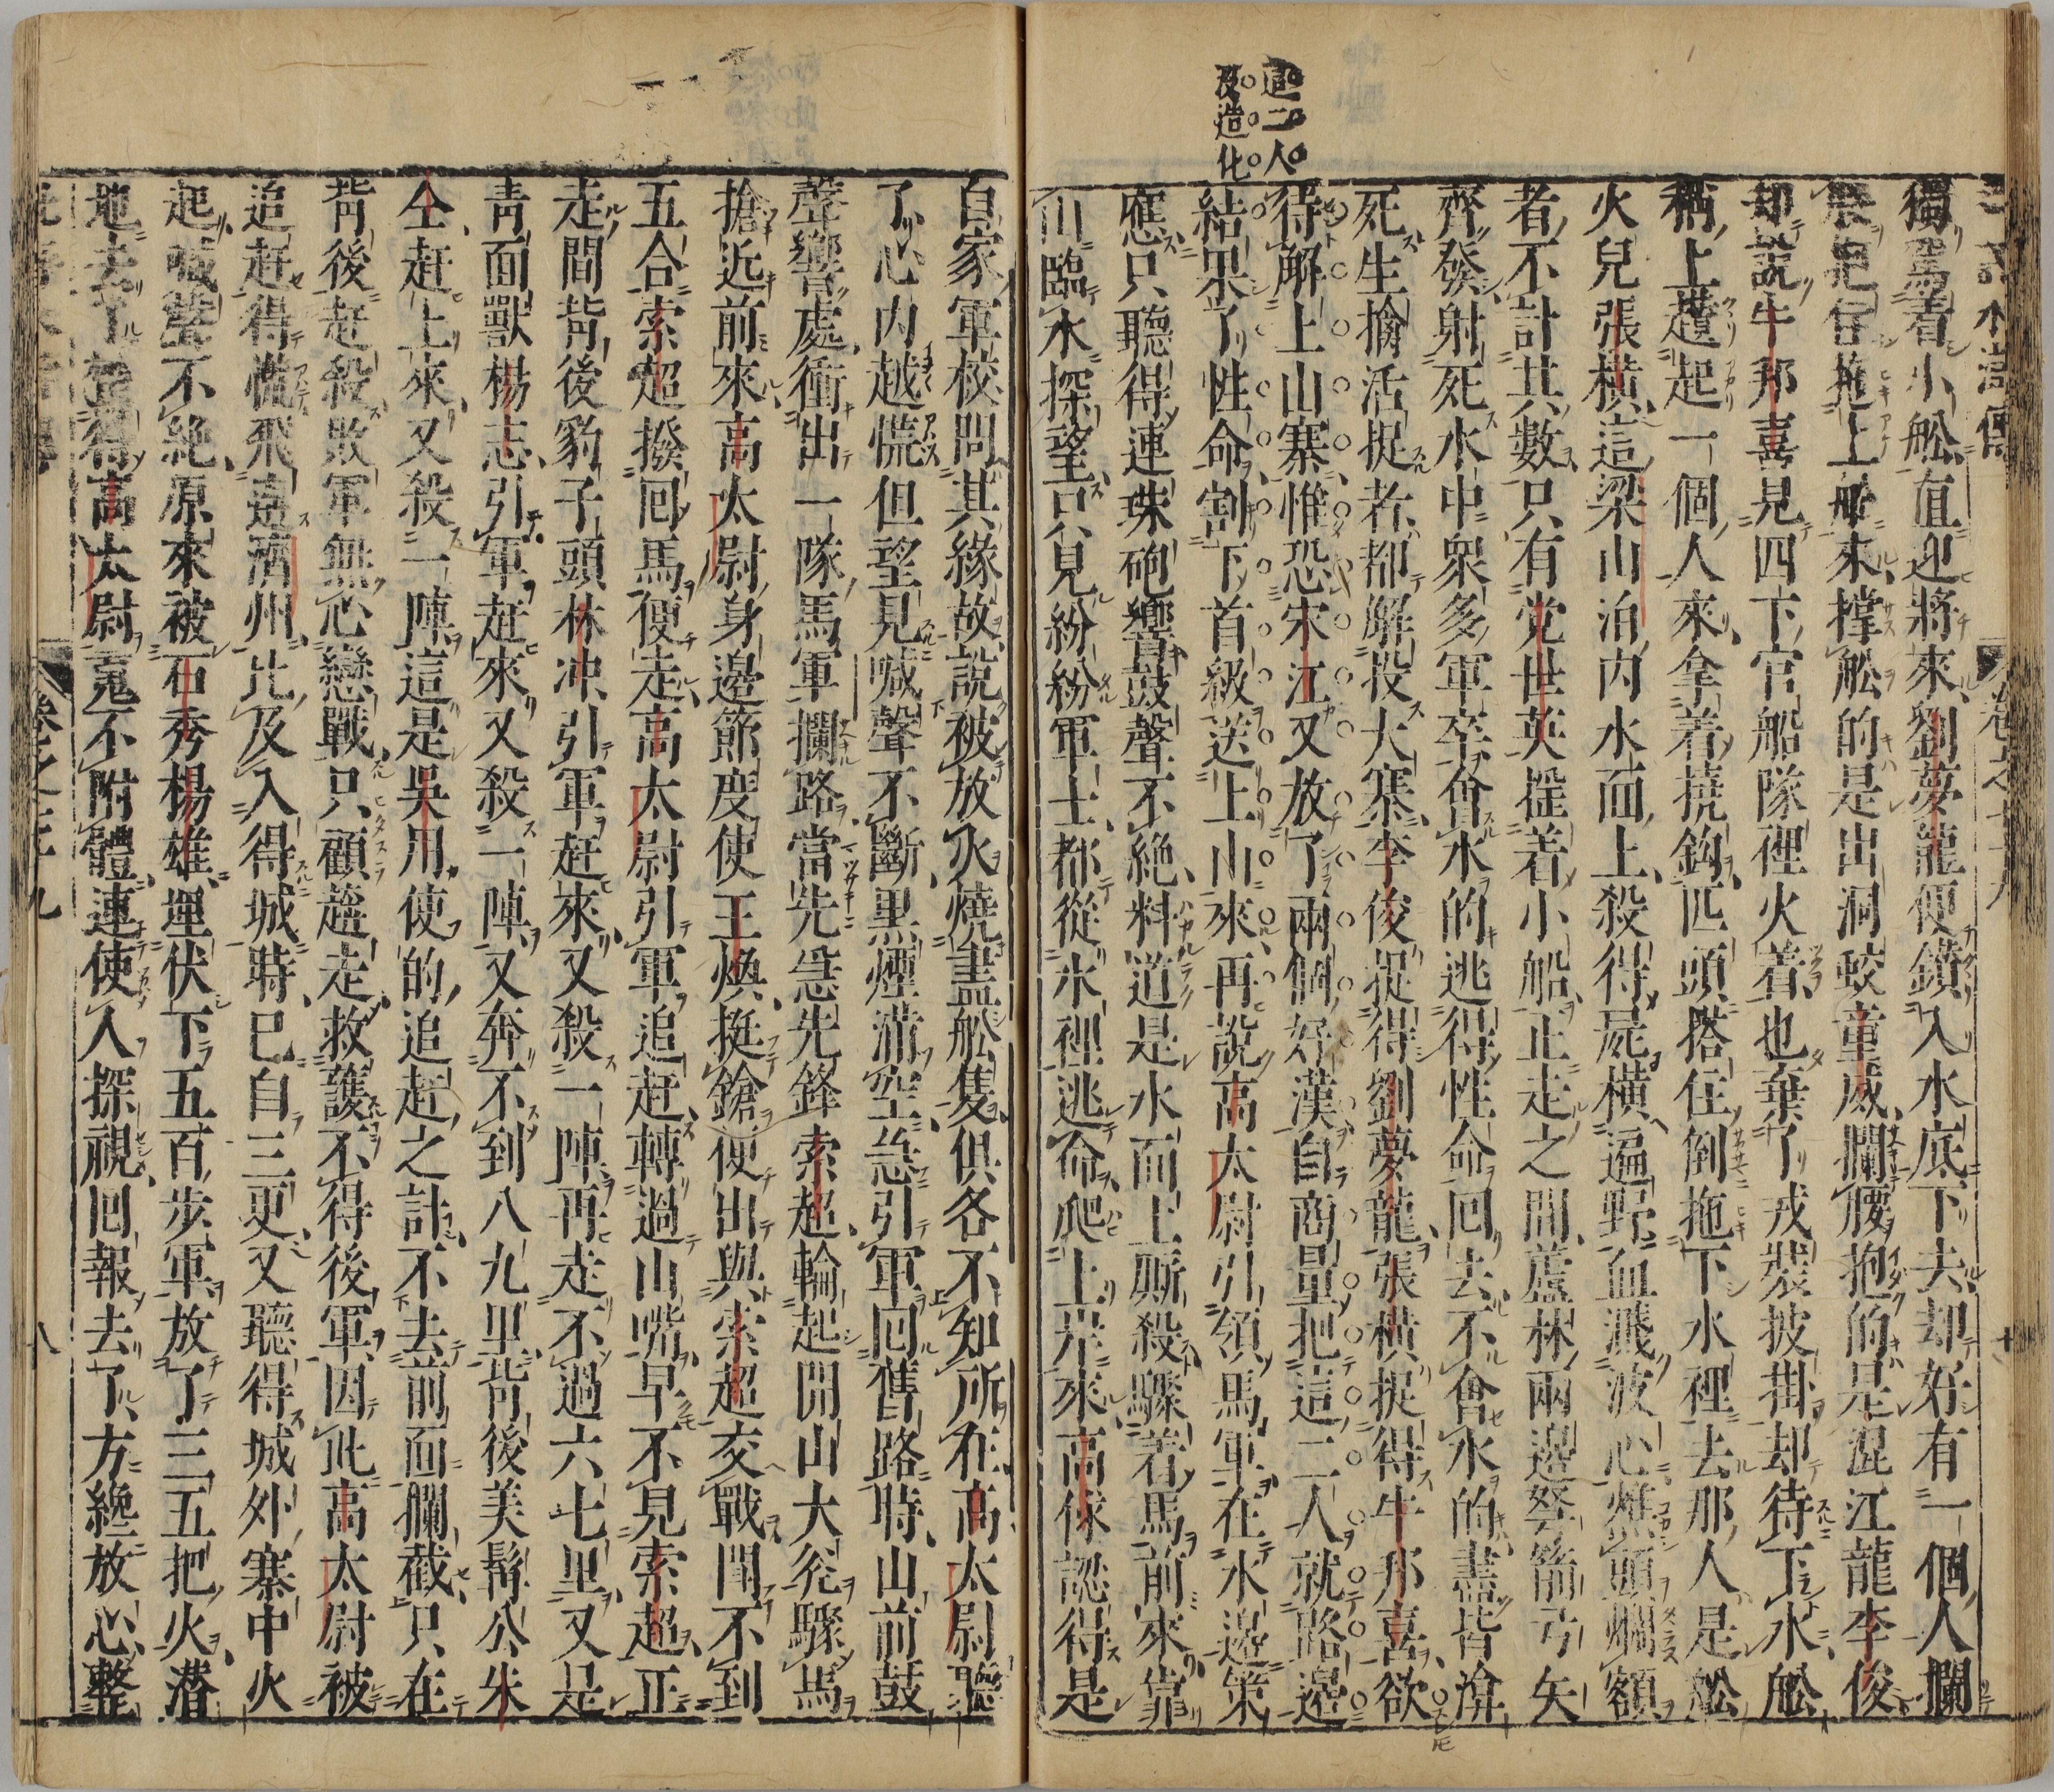 這二人
没造化
獨駕着小舩直迎將來劉夢龍便鑚入水底下去却好有一個人攔
腰抱住拖上船來撑舩的是出洞蛟童威攔腰抱的是混江龍李俊
却說牛邦喜見四下官船隊裡火着也棄了戎裝披掛却待下水舩
稍上鑽起一個人來拿着撓鈎匹頭搭住倒拖下水裡去那人是舩
火兒張橫這梁山泊内水面上殺得屍橫遍野血濺波心燋頭爛額
者不計其數只有党世英揺着小船正走之間蘆林兩邊弩箭弓矢
齊發射死水中衆多軍卒會水的逃得性命回去不會水的盡皆渰
死生擒活捉者都解投大寨李俊捉得劉夢龍張橫捉得牛邦喜欲
待解上山寨惟恐宋江又放了兩個好漢自商量把這二人就路邊
結果了性命割下首級送上山來再說高太尉引領馬軍在水邊策
應只聽得連珠砲響鼓聲不絶料道是水面上厮殺驟着馬前來靠
山臨水探望只見紛紛軍士都從水裡逃命爬上岸來高俅認得是
自家軍校問其緣故說被放火燒盡舩隻俱各不知所在高太尉聽
了心内越慌但望見喊聲不斷黒煙滿空急引軍回舊路時山前鼓
聲響處衝出一隊馬軍攔路當先急先鋒索超輪起開山大斧驟馬
搶近前來高太尉身邊節度使王煥挺鎗便出與索超交戰鬪不到
五合索超撥回馬便走高太尉引軍追赶轉過山嘴早不見索超正
走間背後豹子頭林冲引軍赶來又殺一陣再走不過六七里又是
靑面獸楊志引軍赶來又殺一陣又奔不到八九里背後美髯公朱
仝赶上來又殺一陣這是吳用使的追赶之計不去前面攔截只在
背後赶殺敗軍無心戀戰只顧奔走救護不得後軍因此高太尉被
追赶得慌飛奔濟州比及入得城時已自三更又聽得城外寨中火
起喊聲不絶原來被石秀楊雄埋伏下五百步軍放了三五把火潛
地去了驚得高太尉䰟不附體連使人探視回報去了方纔放心整
卷之三九
八